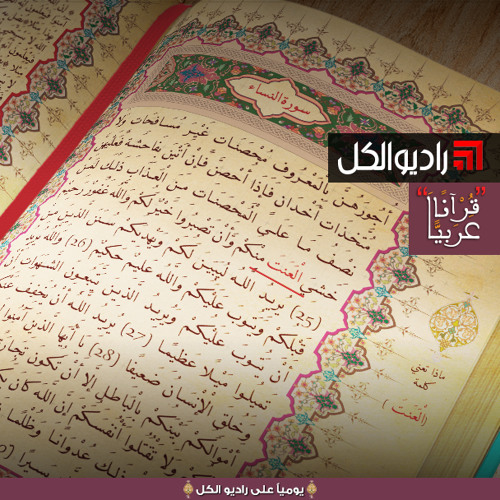 سورة النساء
أجورهن بالمعروف محصنات غير مسافحات ولا
متخذات أخدان فإذا أحصن فإن أتين بفاحشة فعليهن
نصف ما على المحصنات من العذاب ذلك لمن
خشي العنت منكم وأن تصبروا خير لكم والله غفور رحيم
(25) يريد الله ليبين لكم ويهديكم سنن الذين من
قبلكم ويتوب عليكم والله عليم حكيم (26) والله يريد
أن يتوب عليكم ويريد الذين يتبعون الشهوات أن
تميلوا ميلا عظيما (27) يريد الله أن يخفف عنكم
وخلق الإنسان ضعيفا (28) يا أيها الذين آمنوا
أموالكم بينكم بالباطل إلا أن تكون تجارة
ولا تقتلوا أنفسكم إن الله كان
ذلك عدوانا وظلما
يسيرا
راديو الكل
"قرآناً
عربياً"
ماذا تعني
كلمة
(العنت)
يومياً على راديو الكل